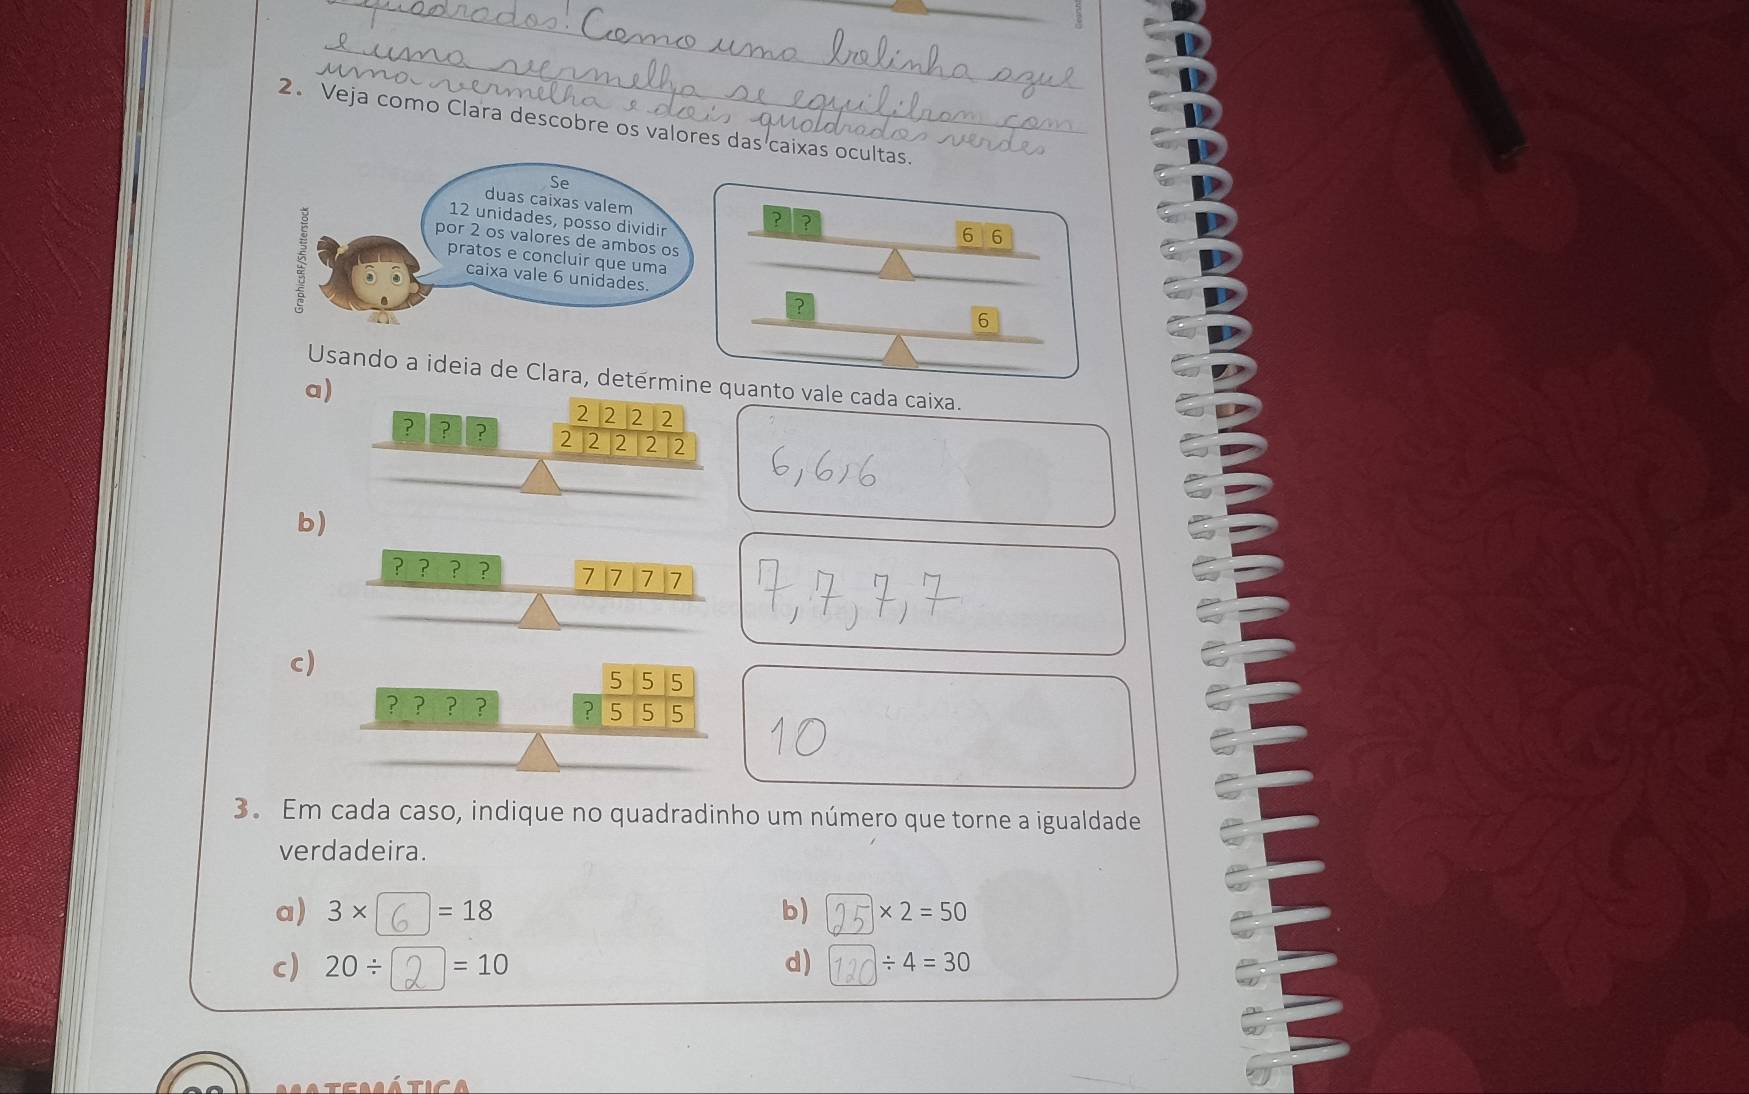 quadrados! Como uma bolinha azul
e uma vermelha se equilibram com
uma vermelha e dois quadrados verdes
2. Veja como Clara descobre os valores das caixas ocultas.
Se
duas caixas valem
12 unidades, posso dividir
por 2 os valores de ambos os
pratos e concluir que uma
caixa vale 6 unidades.
GraphicsRF/Shutterstock
? ? 6 6
? 6
Usando a ideia de Clara, determine quanto vale cada caixa.
a)
2 2 2 2
? ? ? 2 2 2 2 2
6, 6, 6
b)
? ? ? ? 7 7 7 7
7, 7, 7, 7
c)
5 5 5
? ? ? ? ? 5 5 5
10
3. Em cada caso, indique no quadradinho um número que torne a igualdade
verdadeira.
a) 3 × 6 = 18
b) 25 × 2 = 50
c) 20 ÷ 2 = 10
d) 120 ÷ 4 = 30
MATEMÁTICA